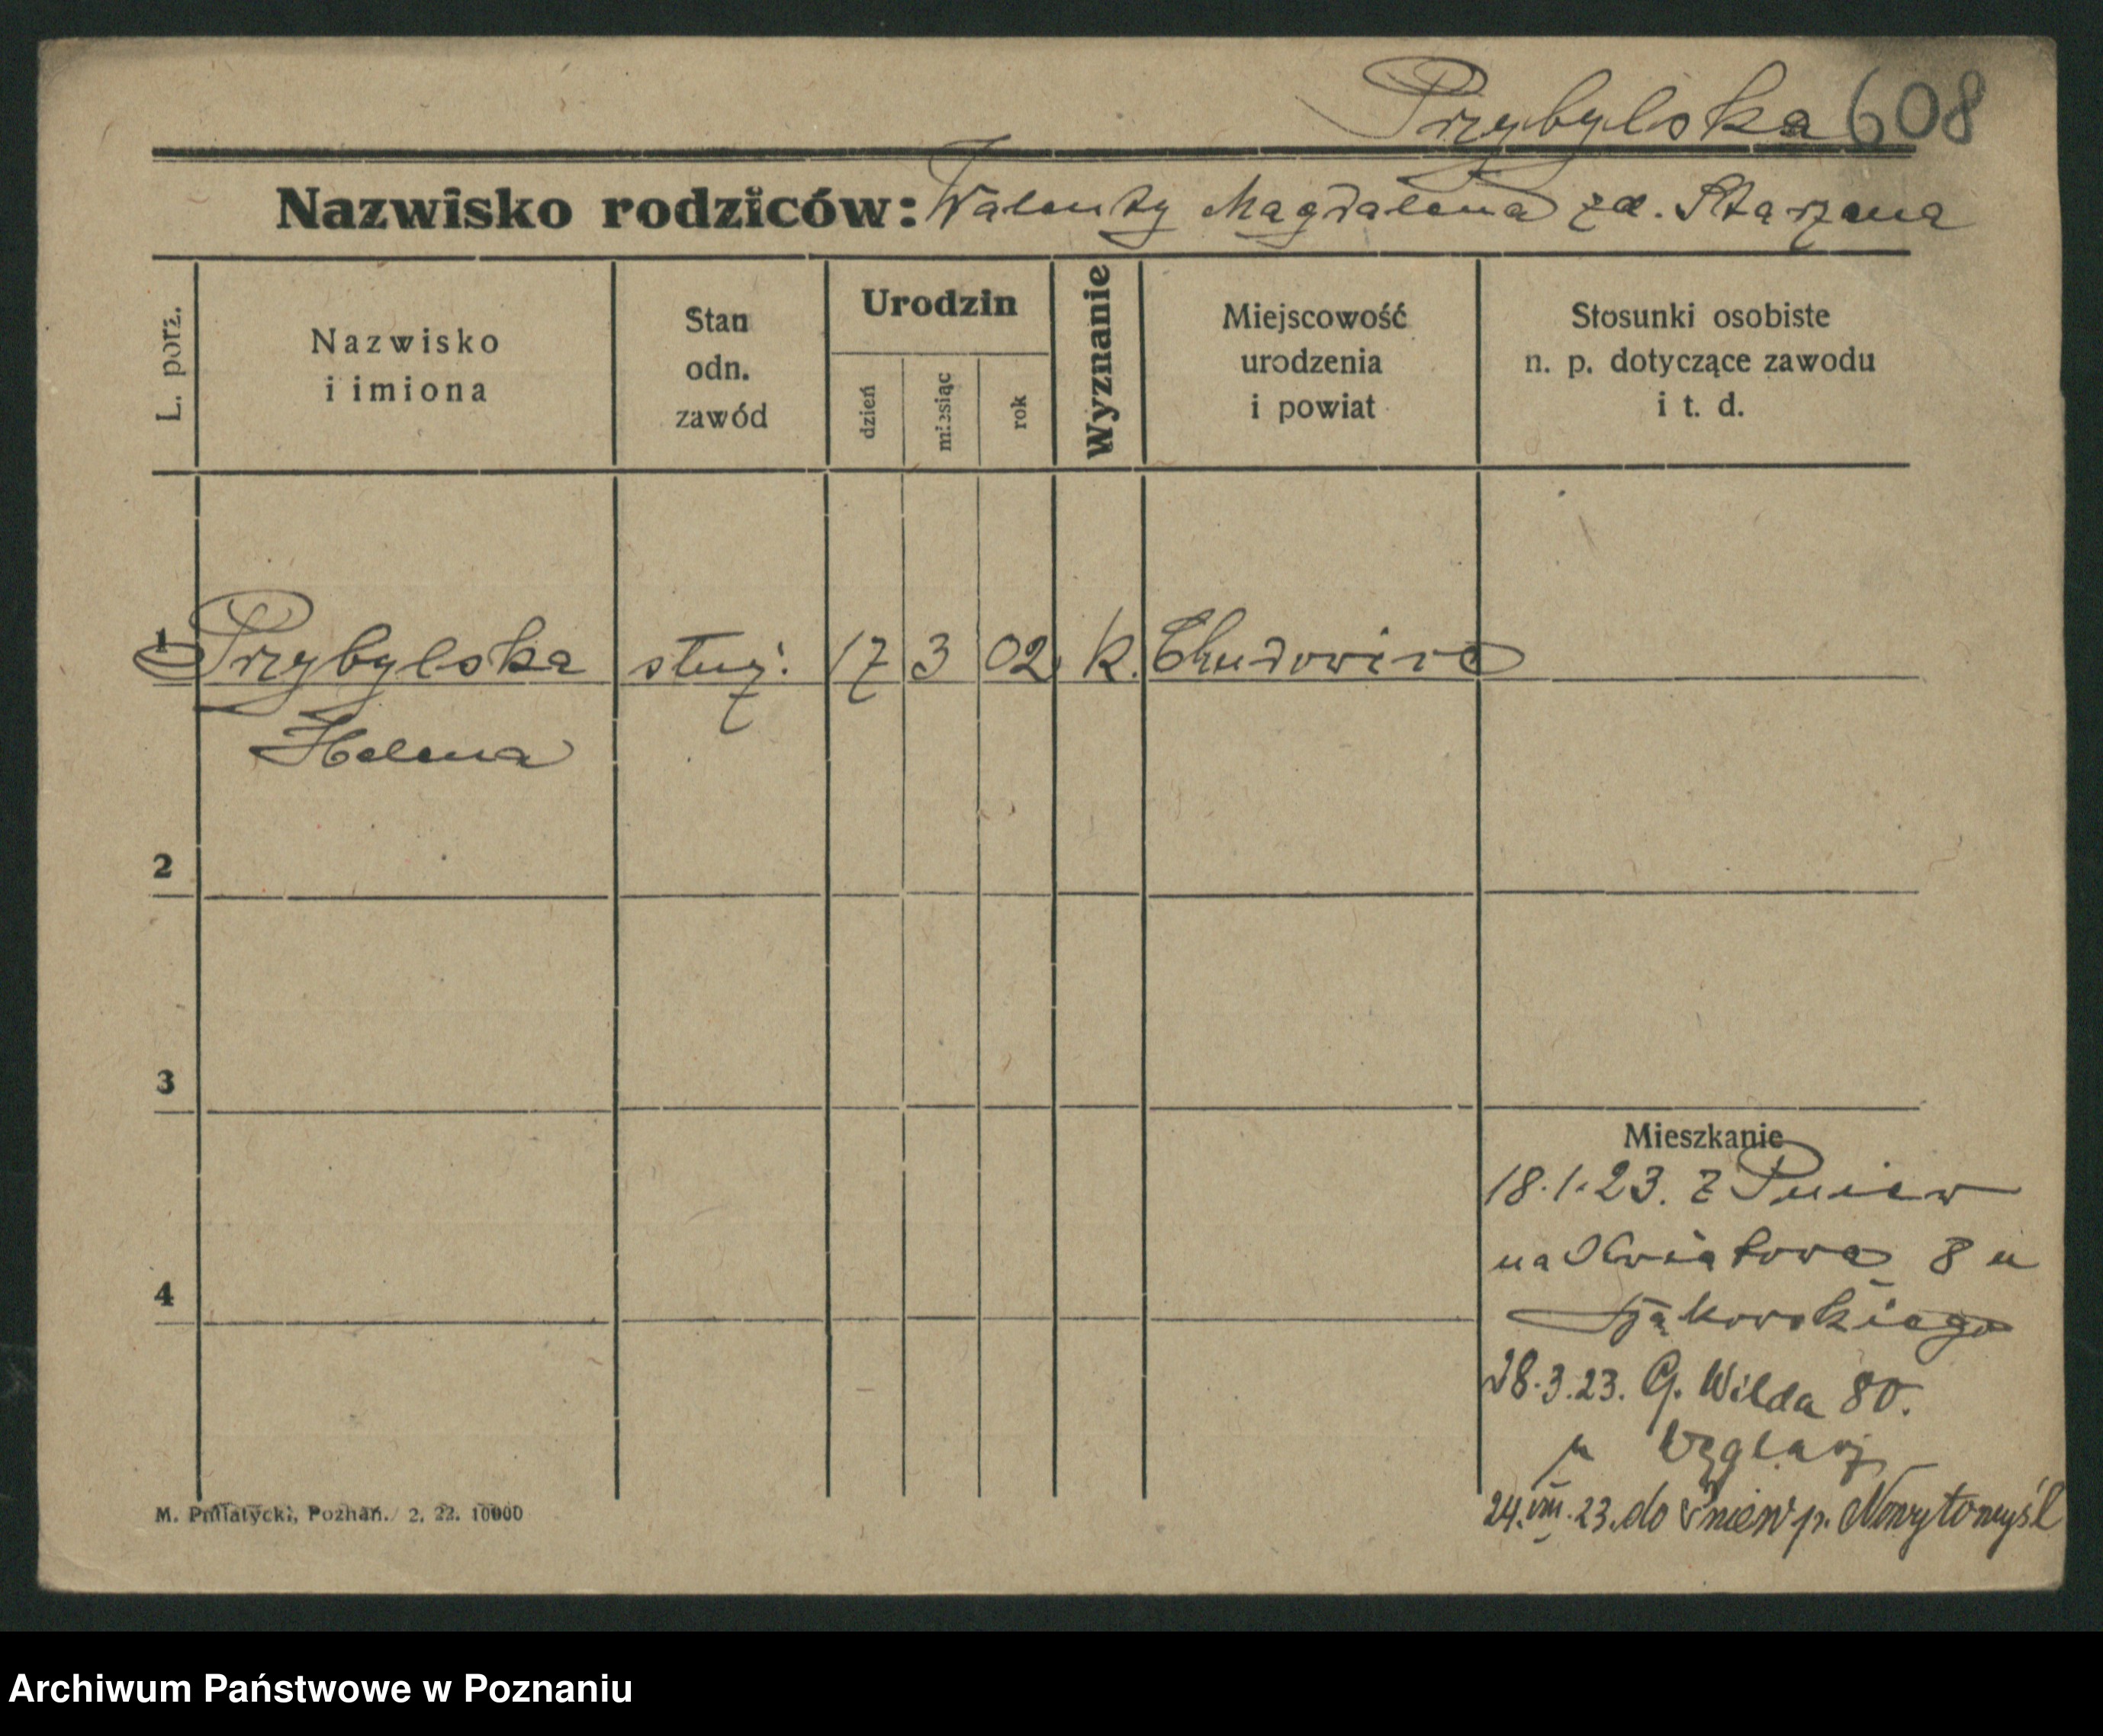 Przybylska 608
Nazwisko rodziców: Walenty Magdalena zd.
L. porz.
Nazwisko
i imiona
Stan
odn.
zawód
Urodzin
dzień
miesiąc
rok
Wyznanie
Miejscowość
urodzenia
i powiat
Stosunki osobiste
n. p. dotyczące zawodu
i t. d.
1 Przybylska służ. 17 3 02 k.
Helena
2
3
4
Mieszkanie
18.1.23. z Pniew
na Kwiatową 8 u
28.3.23. G. Wilda 80.
24.VIII.23. do Pniew p. Nowytomyśl
M. Pniiatycki, Poznań. 2. 22. 10000
Archiwum Państwowe w Poznaniu